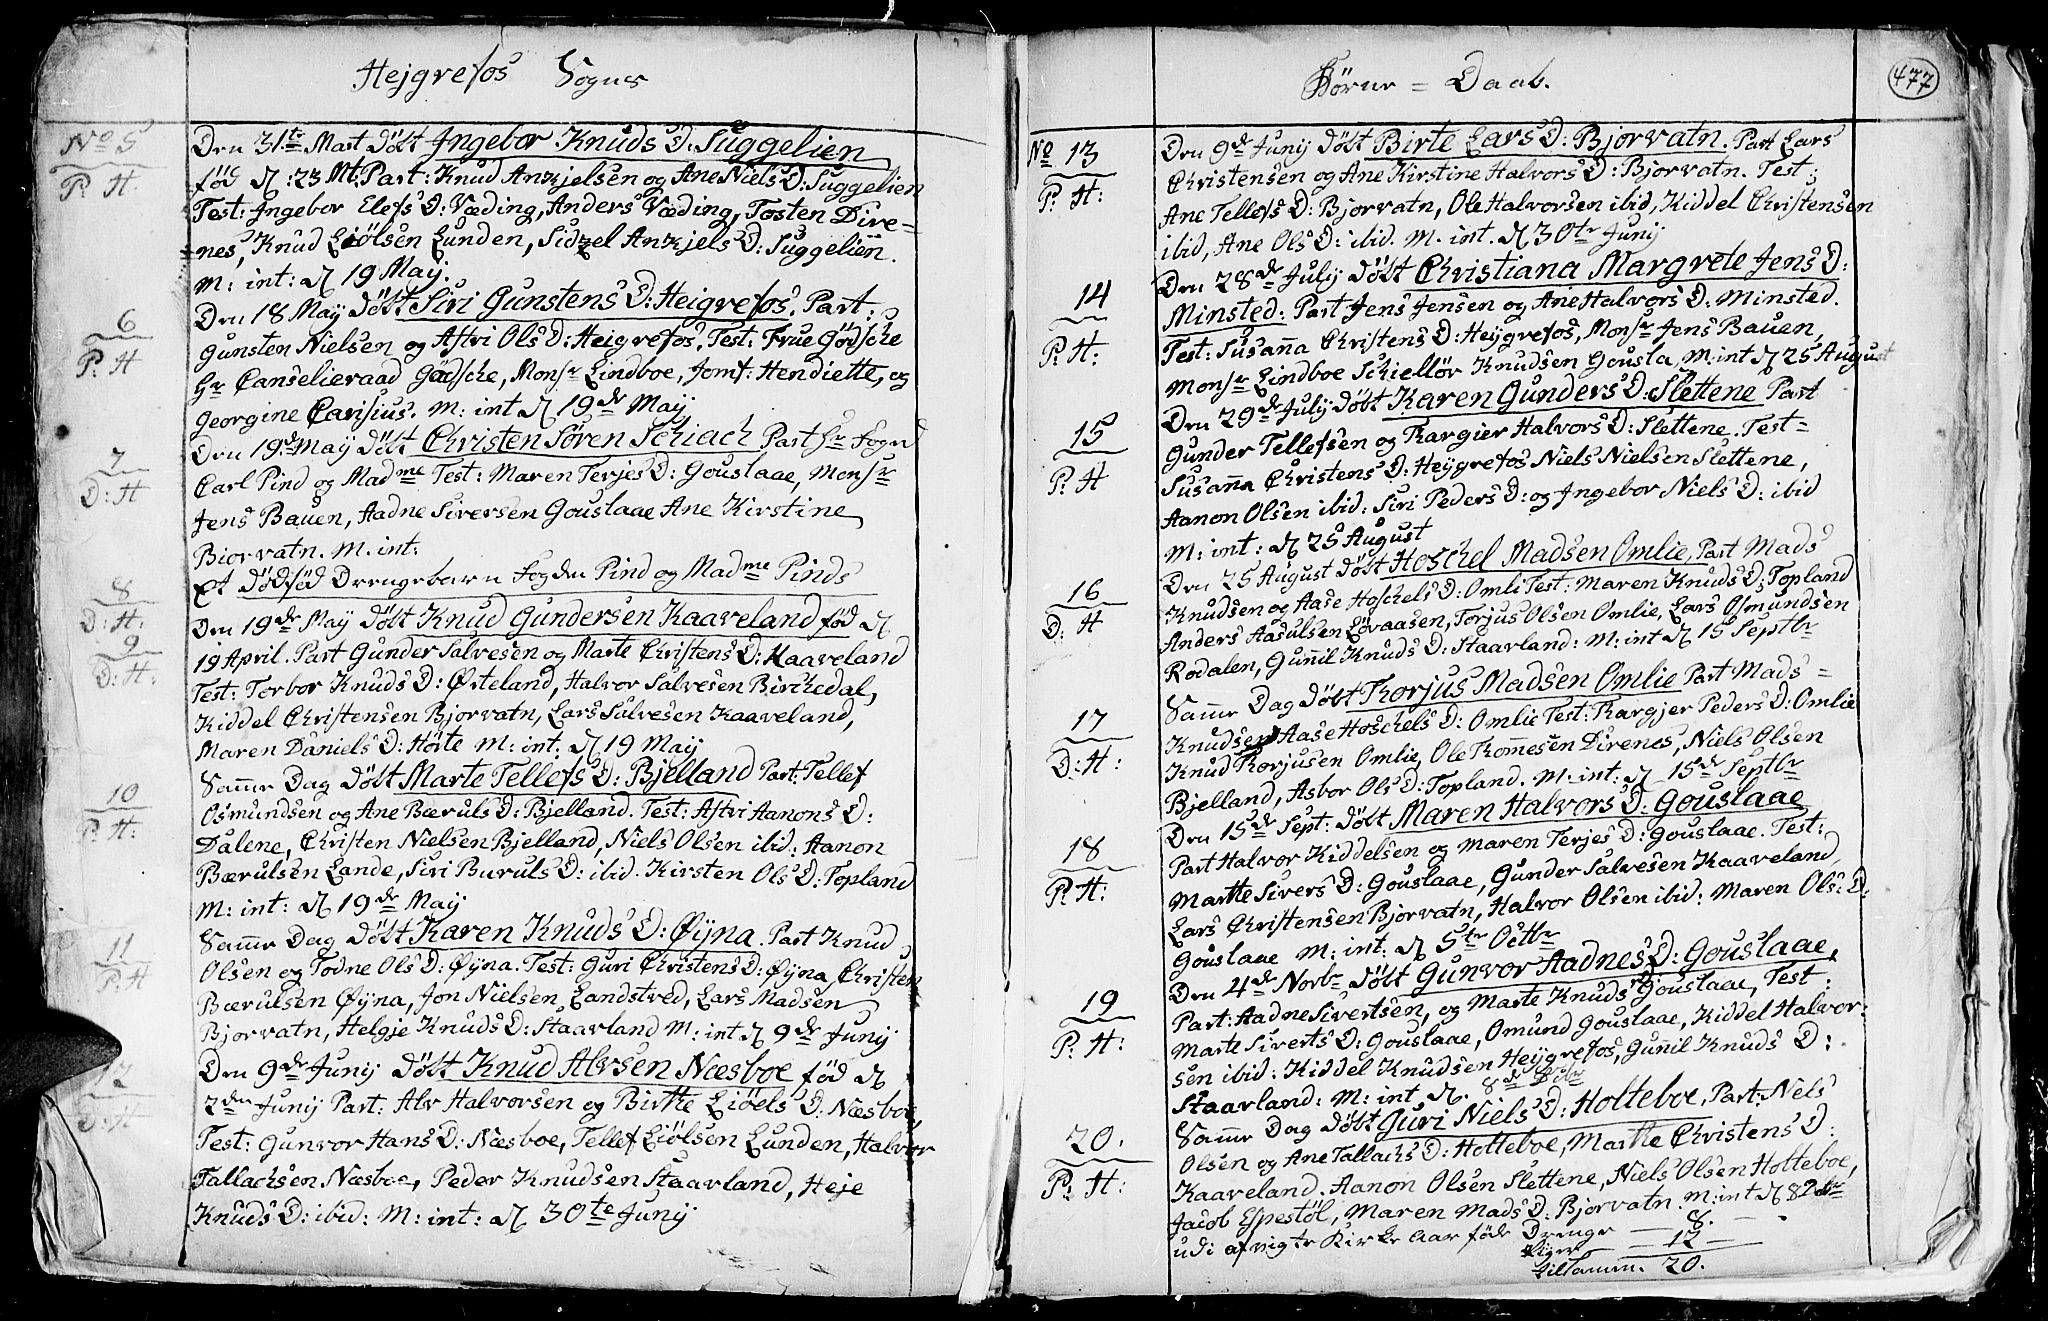 Hejgrefos Sogns
No 5
P. H.
Den 31te Mart döbt Ingebor Knuds D: Suggelien
föd d: 23 Mt. Part: Knud Ankjelsen og Ane Niels D: Suggelien
Test: Ingebor Elefs D: Væding, Anders Væding, Tosten Dire-
nes, Knud Liölsen Lunden, Sidzel Ankjels D: Suggelien.
M: int: d 19 Maij.
6
P. H
Den 18 Maij döbt Siri Gunstens D: Heigrefos. Part:
Gunsten Nielsen og Astri Ols D: Heigrefos. Test: Frue Gödsche
Hr Canselieraad Gödsche, Monsr Lindboe, Jomf: Hendiette, og
Georgine Carisius. M: int d 19de Maij
7
D: H
Den 19d Maij döbt Christen Sören Schiach Part Hr Fogd
Carl Pind og Madme Test: Maren Terjes D: Gouslaae, Monsr
Jens Bauen, Aadne Siversen Gouslaae Ane Kirstine
Biorvatn. M. int:
8
D: H:
Et dödföd Drengebarn Fogden Pind og Madme Pinds
9
D: H:
Den 19de Maij döbt Knud Gundersen Kaaveland föd d
19 April. Part Gunder Salvesen og Marte Christens D: Kaaveland
Test: Torbor Knuds D: Østeland, Halvor Salvesen Birckedal,
Kiddel Christensen Bjorvatn, Lars Salvesen Kaaveland,
Maren Daniels D: Hörte M: int. d 19 Maij
10
P: H:
Samme Dag döbt Marte Tellefs D: Bjelland Part: Tellef
Osmundsen og Ane Bæruls D: Bjelland. Test: Astri Aanons D:
Dalene, Christen Nielsen Bjelland, Niels Olsen ibid: Aanon
Bærulsen Lande, Siri Buruls D: ibid. Kirsten Ols D: Topland
M: int: d 19de Maij
11
P: H
Samme Dag döbt Karen Knuds D: Øijna. Part Knud
Olsen og Todne Ols D: Øijna. Test: Guri Christens D: Øijna, Christen
Bærulsen Øijna, Jon Nielsen, Landstved, Lars Madsen
Bjorvatn, Helgje Knuds D: Staarland M: int d 9de Junij
12
D: H
Den 9de Junij döbt Knud Alvsen Næsboe föd d
2den Junij Part: Alv Halvorsen og Birtte Liöels D: Næsboe
Test: Gunvor Hans D: Næsboe, Tellef Liölsen Lunden, Halvor
Tallachsen Næsboe, Peder Knudsen Staarland, Heje
Knuds D: ibid: M: int: d 30te Junij
Börne = Daab.
477
No 13
P: H:
Den 9de Junij döbt Birte Lars D: Bjorvatn. Part Lars
Christensen og Ane Kirstine Halvors D: Bjorvatn. Test:
Ane Tellefs D: Bjorvatn, Ole Halvorsen ibid, Kiddel Christensen
ibid, Ane Ols D: ibid. M. int. d 30te Junij
14
P: H:
Den 28de Julij döbt Christiana Margrete Jens D:
Minsted: Part Jens Jensen og Ane Halvors D: Minsted.
Test: Susanna Christens D: Heygrefos, Monsr Jens Bauen,
Monsr Lindboe Schiellör Knudsen Gousla, M: int d 25 August
15
P: H
Den 29de Julij döbt Karen Gunders D: Slettene Part
Gunder Tellefsen og Thargier Halvors D: Slettene. Test=
Susanna Christens D: Heygrefos Niels Nielsen Slettene,
Aanon Olsen ibid: Siri Peders D: og Ingebor Niels D: ibid
M: int: d 25 August
16
D: H
Den 25 August döbt Hoschel Madsen Omlie, Part Mads
Knudsen og Aase Hoschels D: Omli Test: Maren Knuds D: Topland
Anders Aasulsen Lövaasen, Torjus Olsen Omlie, Lars Osmundsen
Rodalen, Gunnil Knuds D: Staarland: M: int d 15 Septbr
17
D: H:
Samme Dag döbt Thorjus Madsen Omlie Part Mads =
Knudsen Aase Hoschels D: Omlie Test: Thargjer Peders D: Omlie
Knud Thorjusen Omlie, Ole Thommesen Direnes, Niels Olsen
Bjelland, Asbor Ols D: Topland. M. int: d 15de Septbr
18
P: H:
Den 15de Sept: döbt Maren Halvors D: Gouslaae
Part Halvor Kiddelsen og Maren Terjes D: Gouslaae. Test:
Martte Sivers D: Gouslaae, Gunder Salvesen Kaaveland,
Lars Christensen Bjorvatn, Halvor Olsen ibid: Maren Ols: D:
Gouslaae M: int: d 5te Octbr
19
P: H:
Den 4de Novbr döbt Gunvor Aadnes D: Gouslaae,
Part: Aadne Sivertsen, og Marte Knuds D Gouslaae, Test:
Marte Siverts D: Gouslaae, Omund Gouslaae, Kiddel Halvor:
sen ibid: Kiddel Knudsen Heygrefos, Gunil Knuds D:
Staarland: M: int d. 8de Dbr
20.
P: H:
Samme Dag döbt Guri Niels D: Holteboe, Part: Niels
Olsen og Ane Tallachs D: Holteboe, Martte Christens D:
Kaaveland. Aanon Olsen Slettene, Niels Olsen Holteboe,
Jacob Espestöl, Maren Mads D: Bjorvatn. M: int d 8 Dbr
udi afvigte Kirke Aar föde Drenge — 8.
Piger — 12
tilsamm. 20.